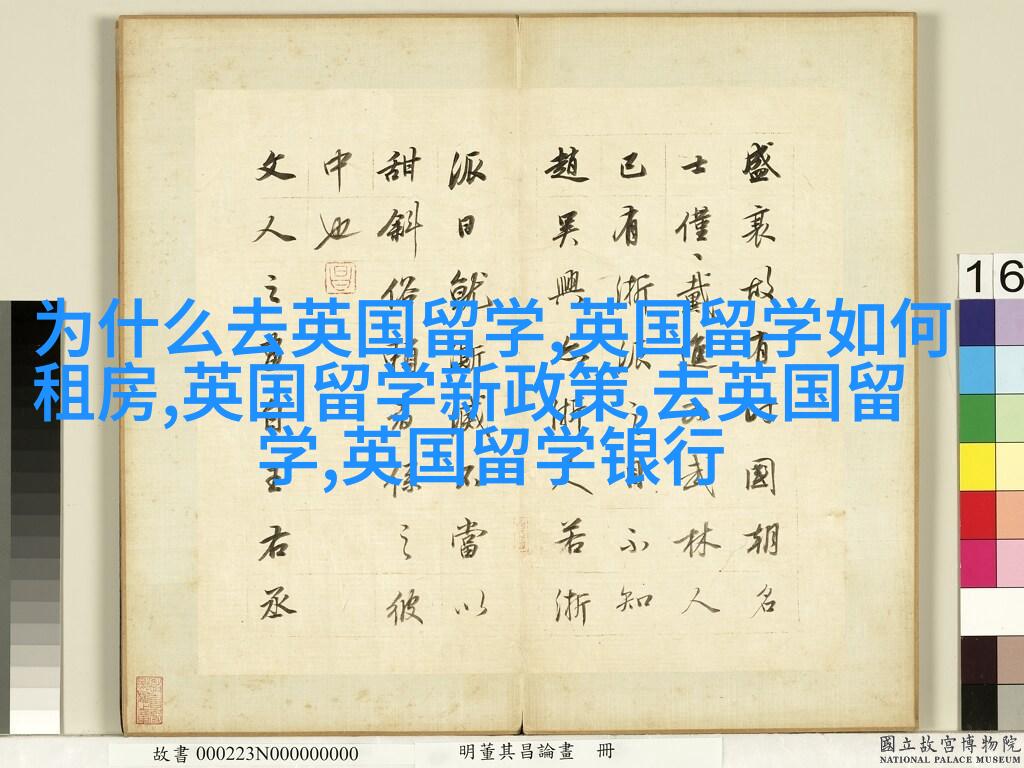 为什么去英国留学,英国留学如何
租房,英国留学新政策,去英国留
学,英国留学银行
盛衰故有時國朝名
士僅、戴進為武林人
已有浙派之目不知
趙吳興亦浙人若浙
派日就澌滅不當以
甜斜俗賴者係之彼
中也
文人之畫自王右丞
16
故書 000223N000000000
明董其昌論畫 冊
國立故宮博物院
NATIONAL PALACE MUSEUM